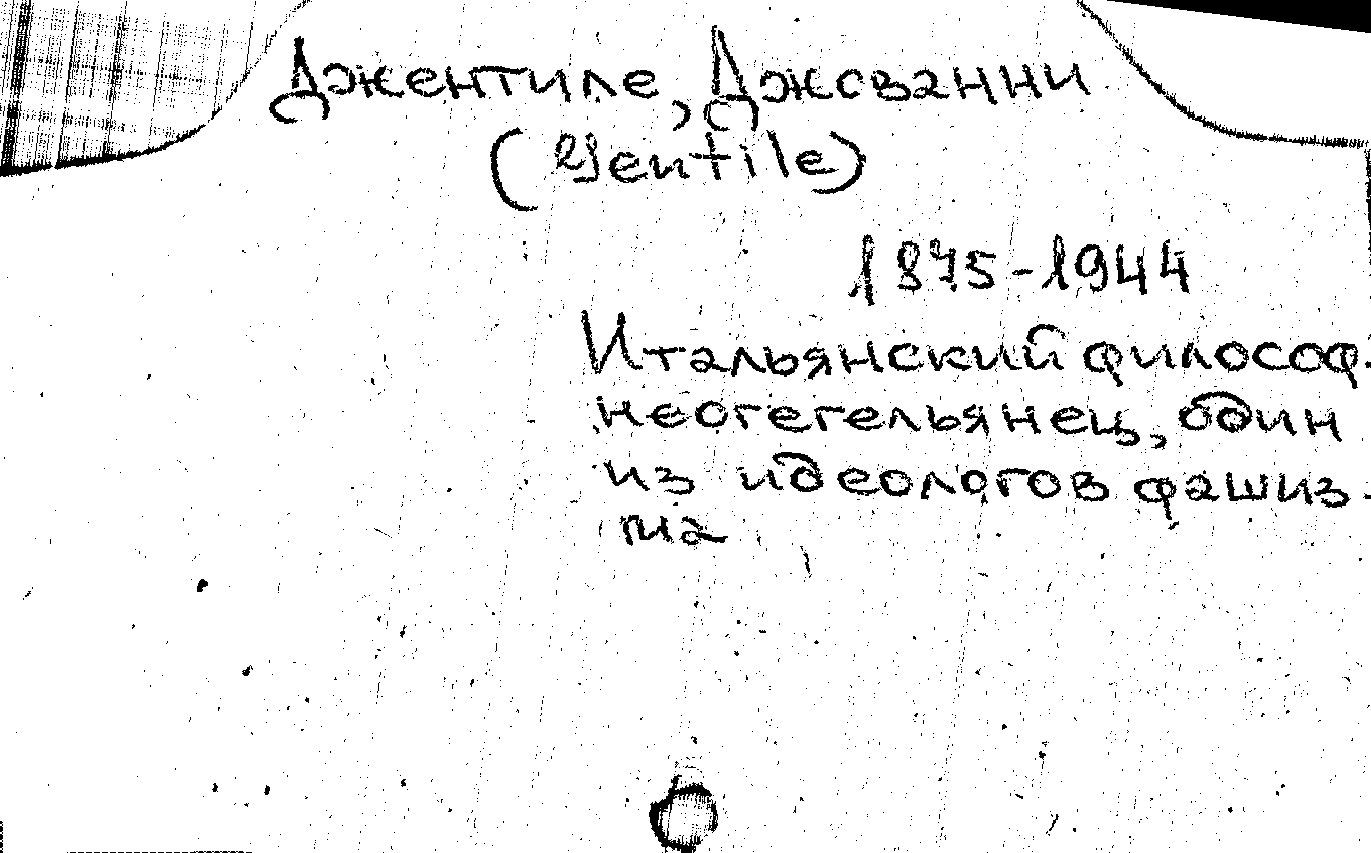 Джентиле, Джованни
(Gentile)
1875-1944
Итальянский философ-
неогегельянец, один
из идеологов фашиз-
ма